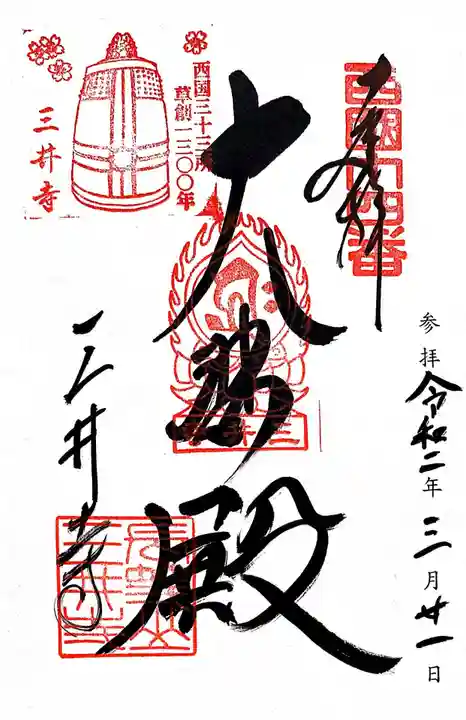 西国十四番
奉拝
参拝令和二年三月廿一日
西国三十三所
草創一三〇〇年
三井寺
大悲殿
三井寺
三井寺